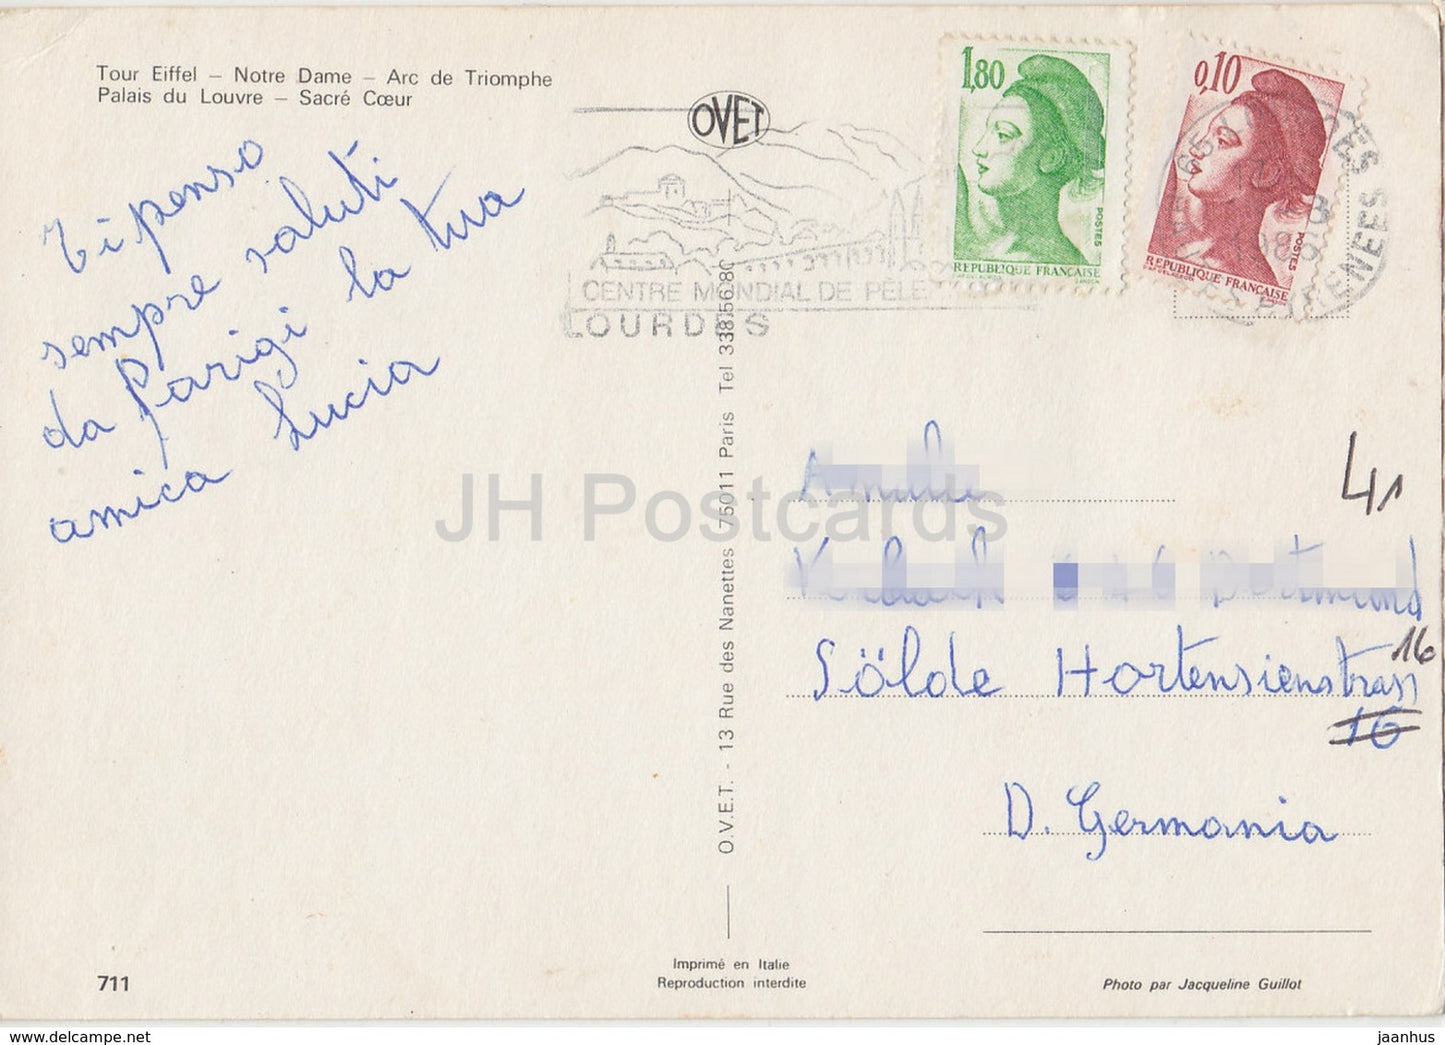 Tour Eiffel – Notre Dame – Arc de Triomphe
Palais du Louvre – Sacré Cœur
Ti penso
sempre saluti
da Parigi la tua
amica Lucia
OVET
CENTRE MONDIAL DE PÈLE
LOURDES
1,80
POSTES
REPUBLIQUE FRANCAISE
0,10
POSTES
REPUBLIQUE FRANCAISE
65
PYRENEES
O.V.E.T. - 13 Rue des Nanettes 75011 Paris Tel 338.56.80
JH Postcards
41
Dortmund
Sölde Hortensienstrass 16
16
D. Germania
711
Imprimé en Italie
Reproduction interdite
Photo par Jacqueline Guillot
jaanhus
https://www.jhpostcards.com